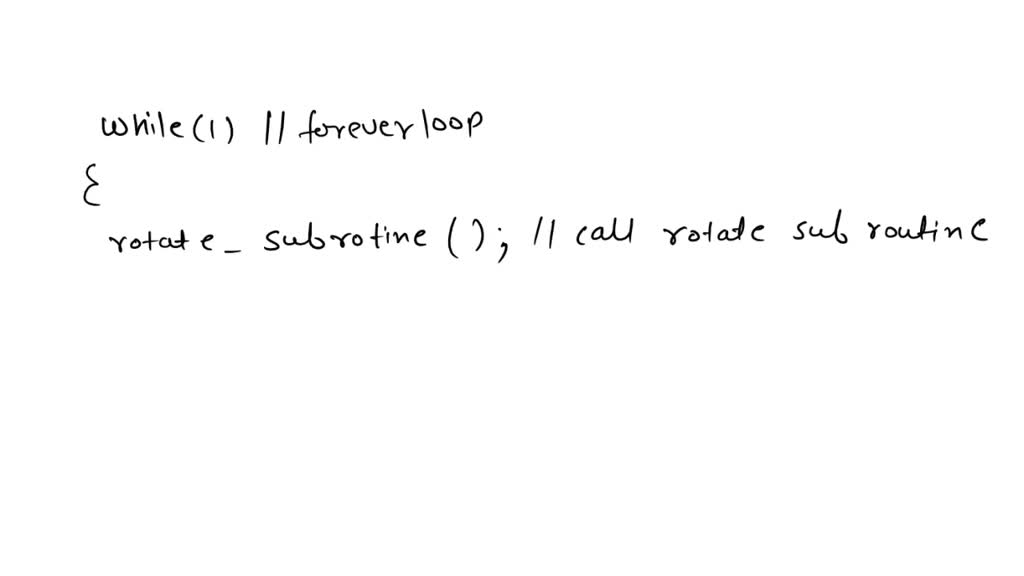 while(1) // foreverloop
{
rotate_ subrotine ( ); // call rotate sub routine